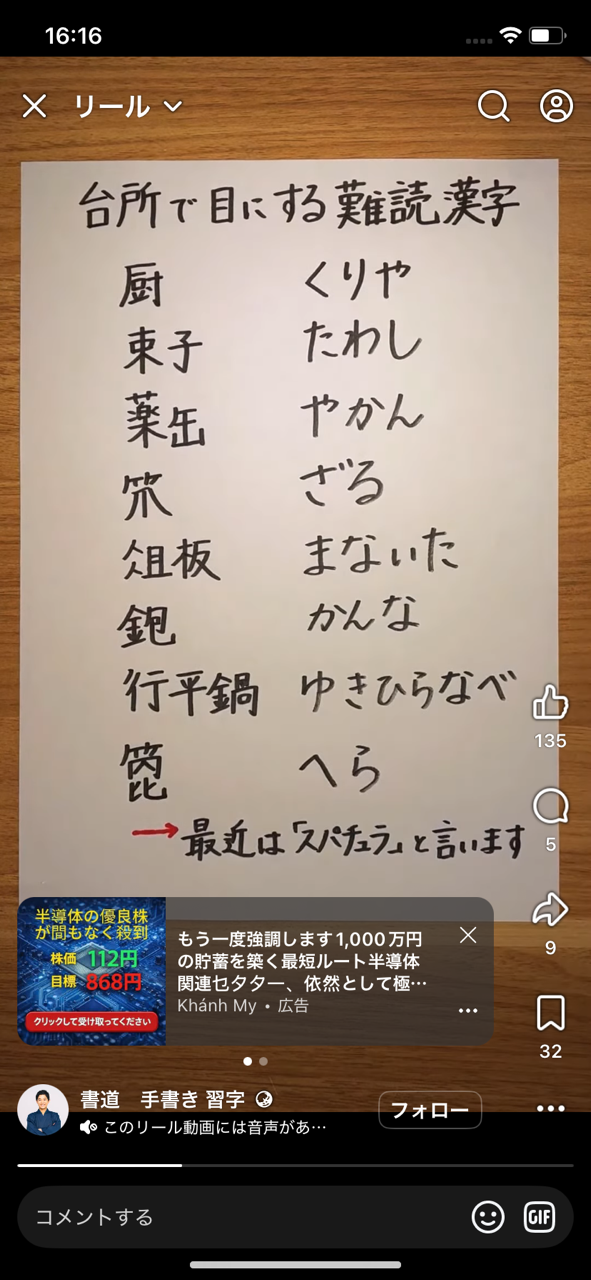 16:16
リール
台所で目にする難読漢字
厨 くりや
束子 たわし
薬缶 やかん
笊 ざる
俎板 まないた
鉋 かんな
行平鍋 ゆきひらなべ
箆 へら
→最近は「スパチュラ」と言います
135
5
9
32
半導体の優良株
が間もなく殺到
株価 112円
目標 868円
クリックして受け取ってください
もう一度強調します1,000万円
の貯蓄を築く最短ルート半導体
関連セクター、依然として極…
Khánh My • 広告
書道 手書き 習字
フォロー
このリール動画には音声があ…
コメントする
GIF